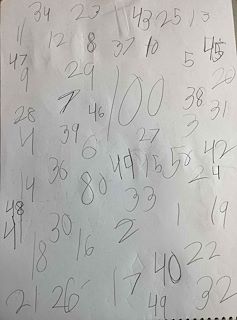 34 23 43 25 13
11 12 8 37 10 5 45
47
9 29 20
28 7 46 100 38 31
4 39 27 3
6 42
36 44 15 50 24
14 80 33
48 1 19
41 30 2
18 16 40 22
21 26 17 49 32